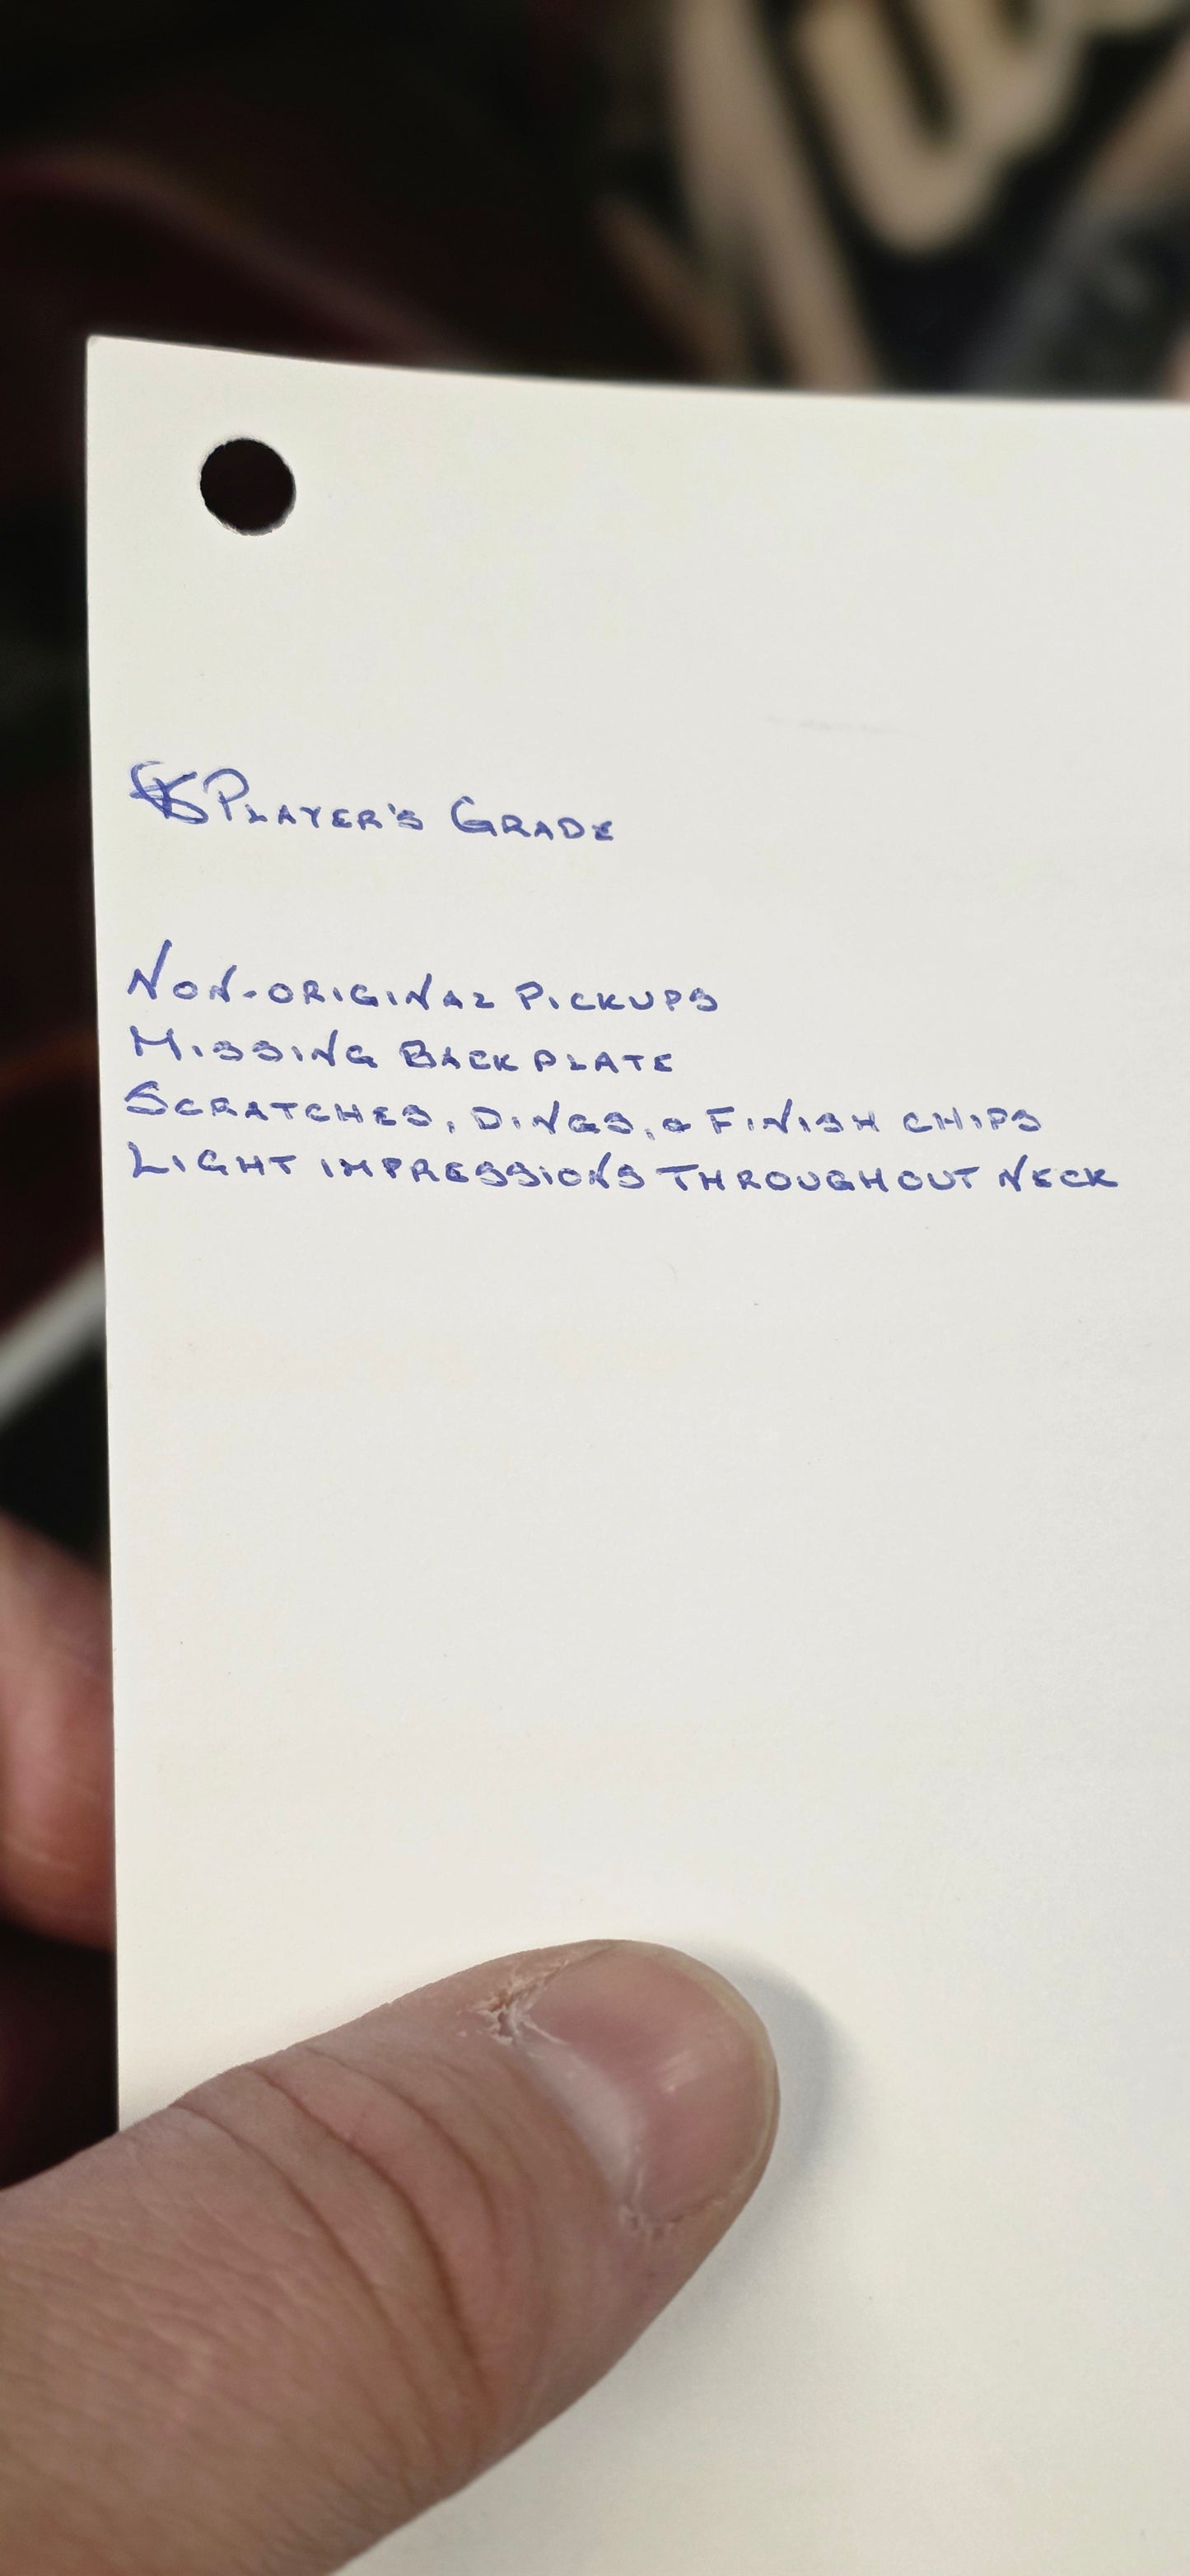 PLAYER'S GRADE
NON-ORIGINAL PICKUPS
MISSING BACKPLATE
SCRATCHES, DINGS, & FINISH CHIPS
LIGHT IMPRESSIONS THROUGHOUT NECK